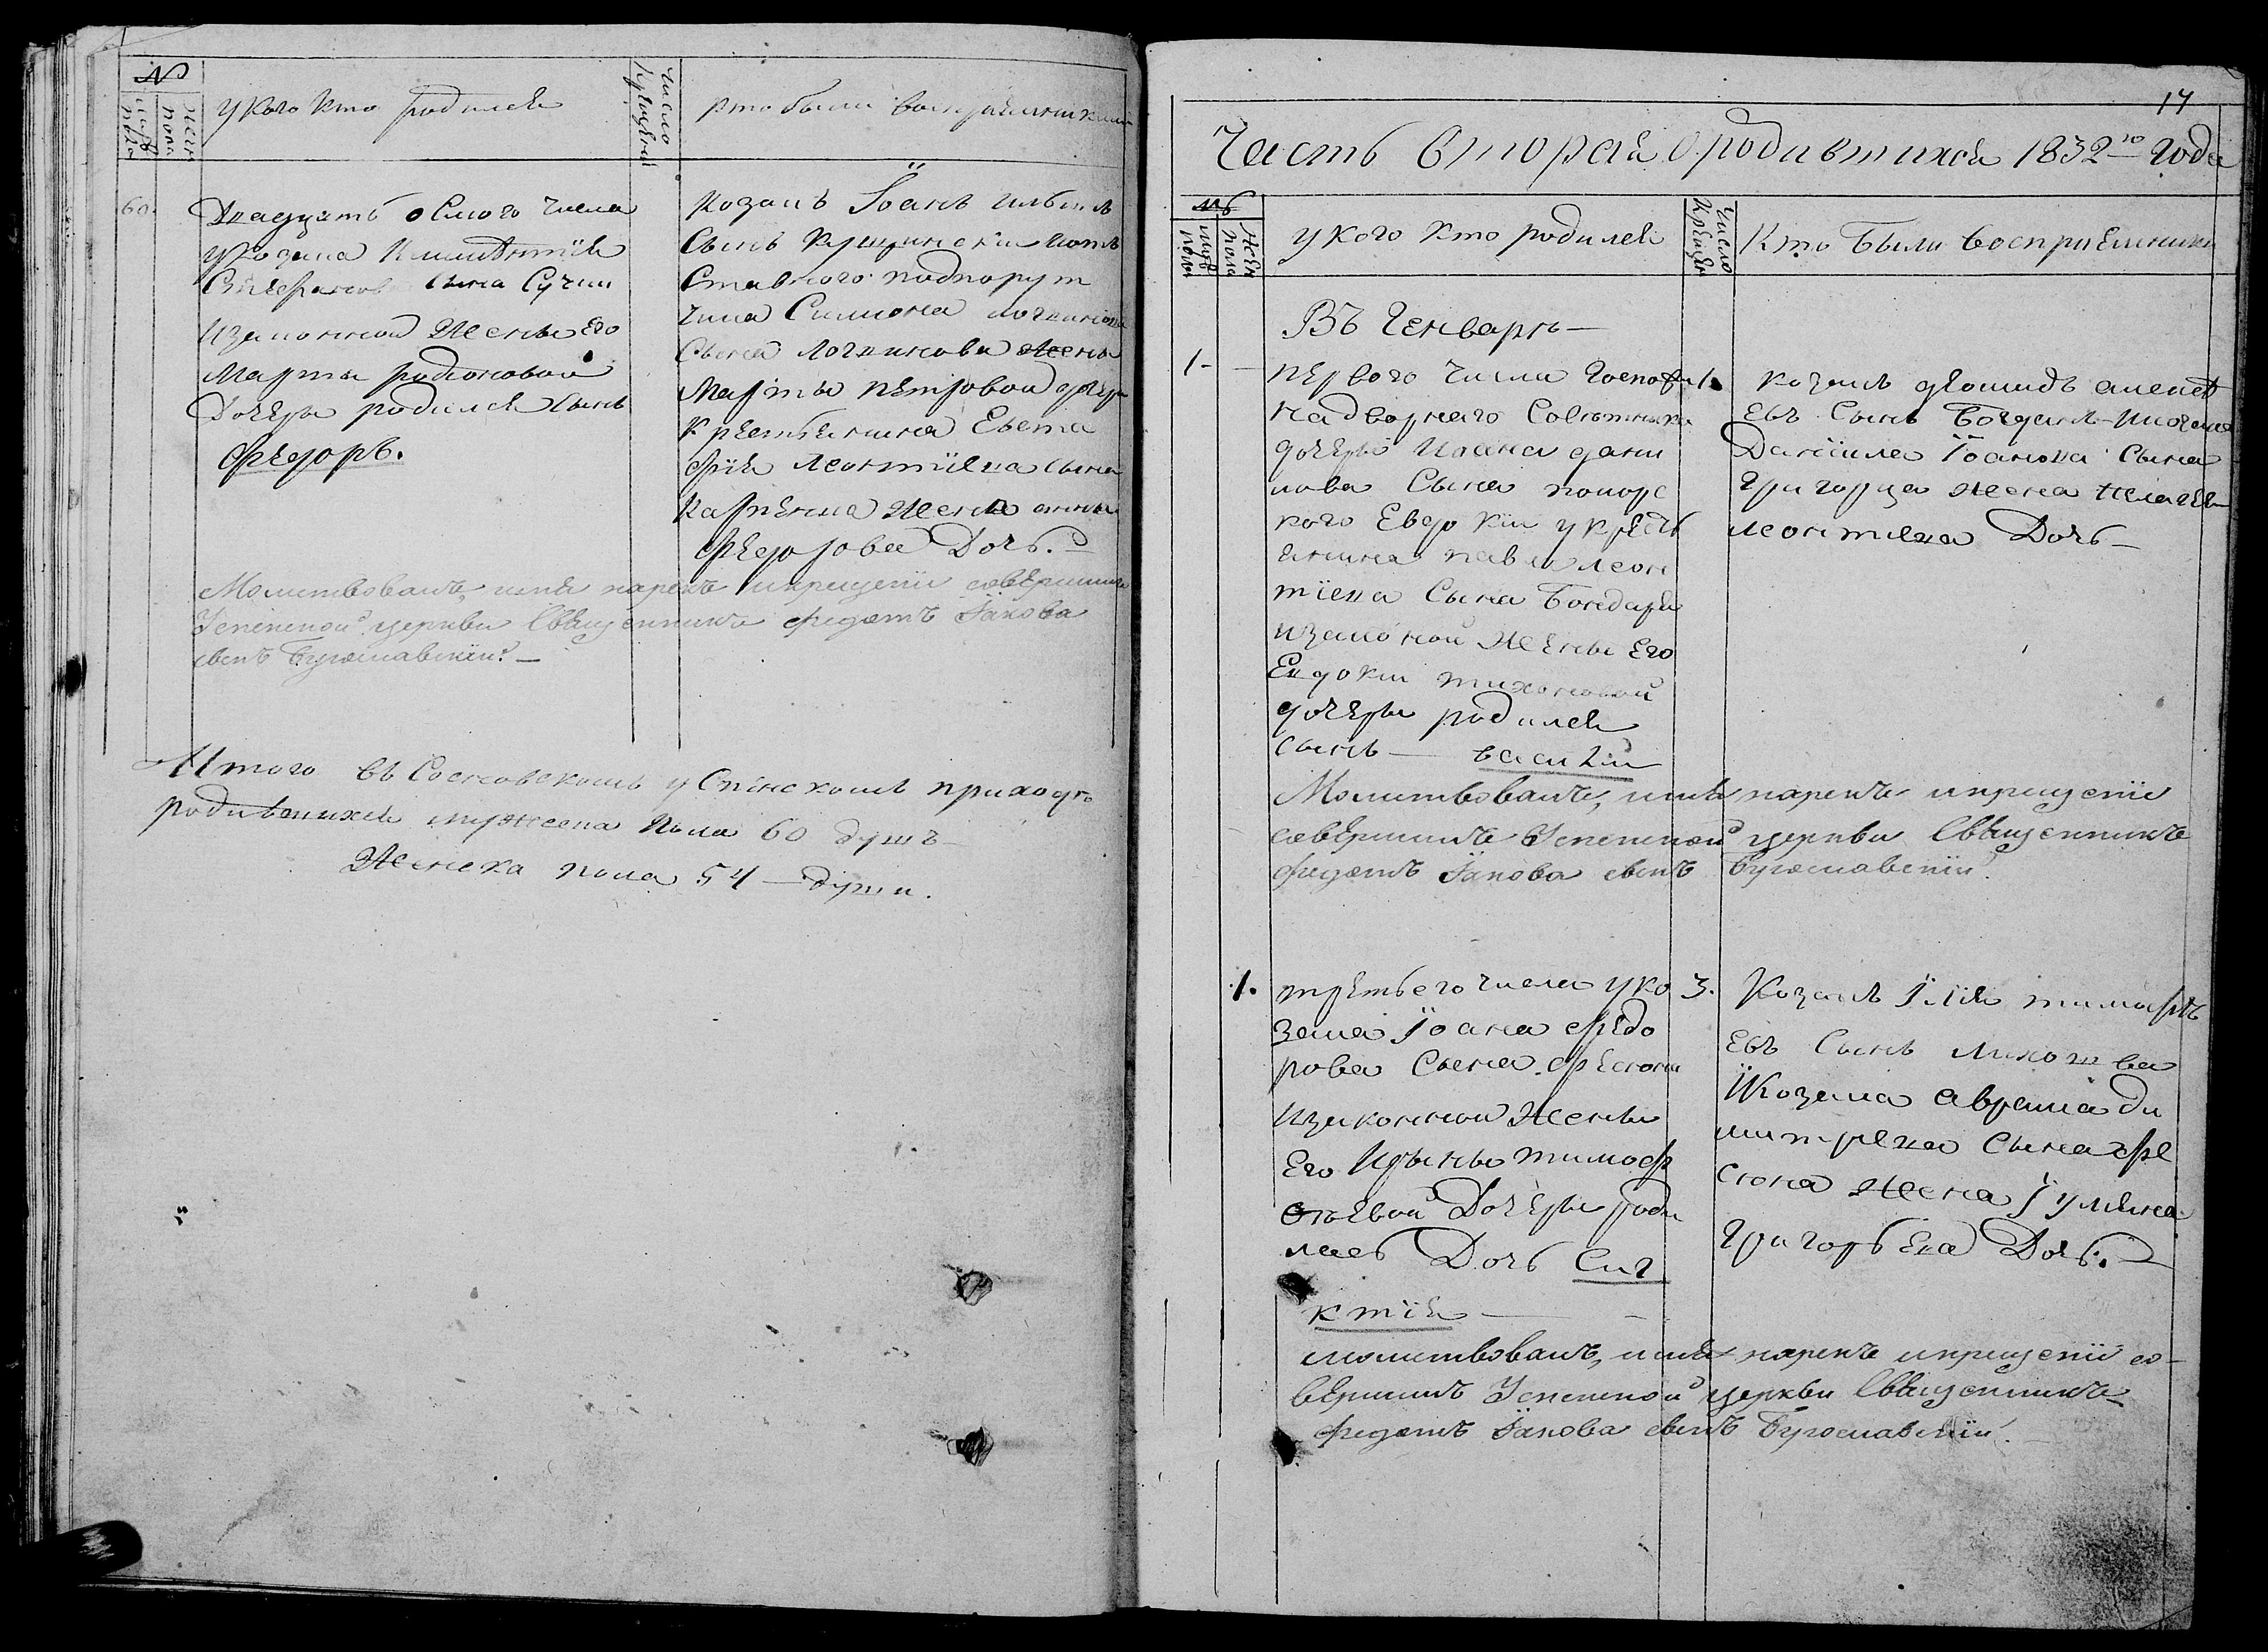 №
муж пола
жен пола
у кого кто родился
Число Крещения
кто были восприемники
60.
Двадцять осмого числа
укозака
Стефанова сына Сучки
изаконной жены Его
Марты родіоновой
Дочеры родился сынъ
Федоръ.
Козакъ Іоанъ
Сынъ
Ставного подпорут
чика Симона
Сына Логвинова жена
Марта петрова дочерь
Крестьянина Евста
фія леонтіева сына
Карпенка жена анна
Федорова Дочь.
Молитвовалъ, имя нарекъ икрещеніе совершилъ
Успенской церкви Священникъ Федотъ Іакова
сынъ Бугославскій.
Итого въ Сосновскомъ успенскомъ приходѣ
родившихся мужеска пола 60 душъ
Женска пола 54 — души.
17
Часть вторая О родившихся 1832го Года
№
муж пола
жен пола
у кого кто родился
Число Крещен
Кто были восприемники
Въ Генварѣ —
1 -
первого числа Госпожи
надворнаго Совѣтника
дочеры Ивана дани
лова Сына
кого Евдокіи укресть
янина павла леон
тіева Сына Бондаря
изаконой жены Его
Евдокіи тихоновой
дочеры родился
сынъ — василій
1.
козакъ алексѣ
евъ Сынъ Богданъ
Даніила Іоанова Сына
Григорца жена пелагея
леонтіева Дочь —
Молитвовалъ, имя нарекъ икрещеніе
совершилъ Успенской церкви Священникъ
Федотъ Іакова сынъ Бугославскій.
1.
третьего числа уко
зака Іоана Федо
рова Сына Фесюна
изаконной жены
Его Ирыны тимоф
еевой Дочеры роди
лась Дочь Син
ктія —
3.
Козакъ Ілія тимофѣ
евъ Сынъ
Икозака аврама ди
митріева Сына Фе
сюна жена Іуліяна
Григорьева Дочь.
молитвовалъ, имя нарекъ икрещеніе со-
вершилъ Успенской церкви Священникъ
Федотъ Іакова сынъ Бугославскій.